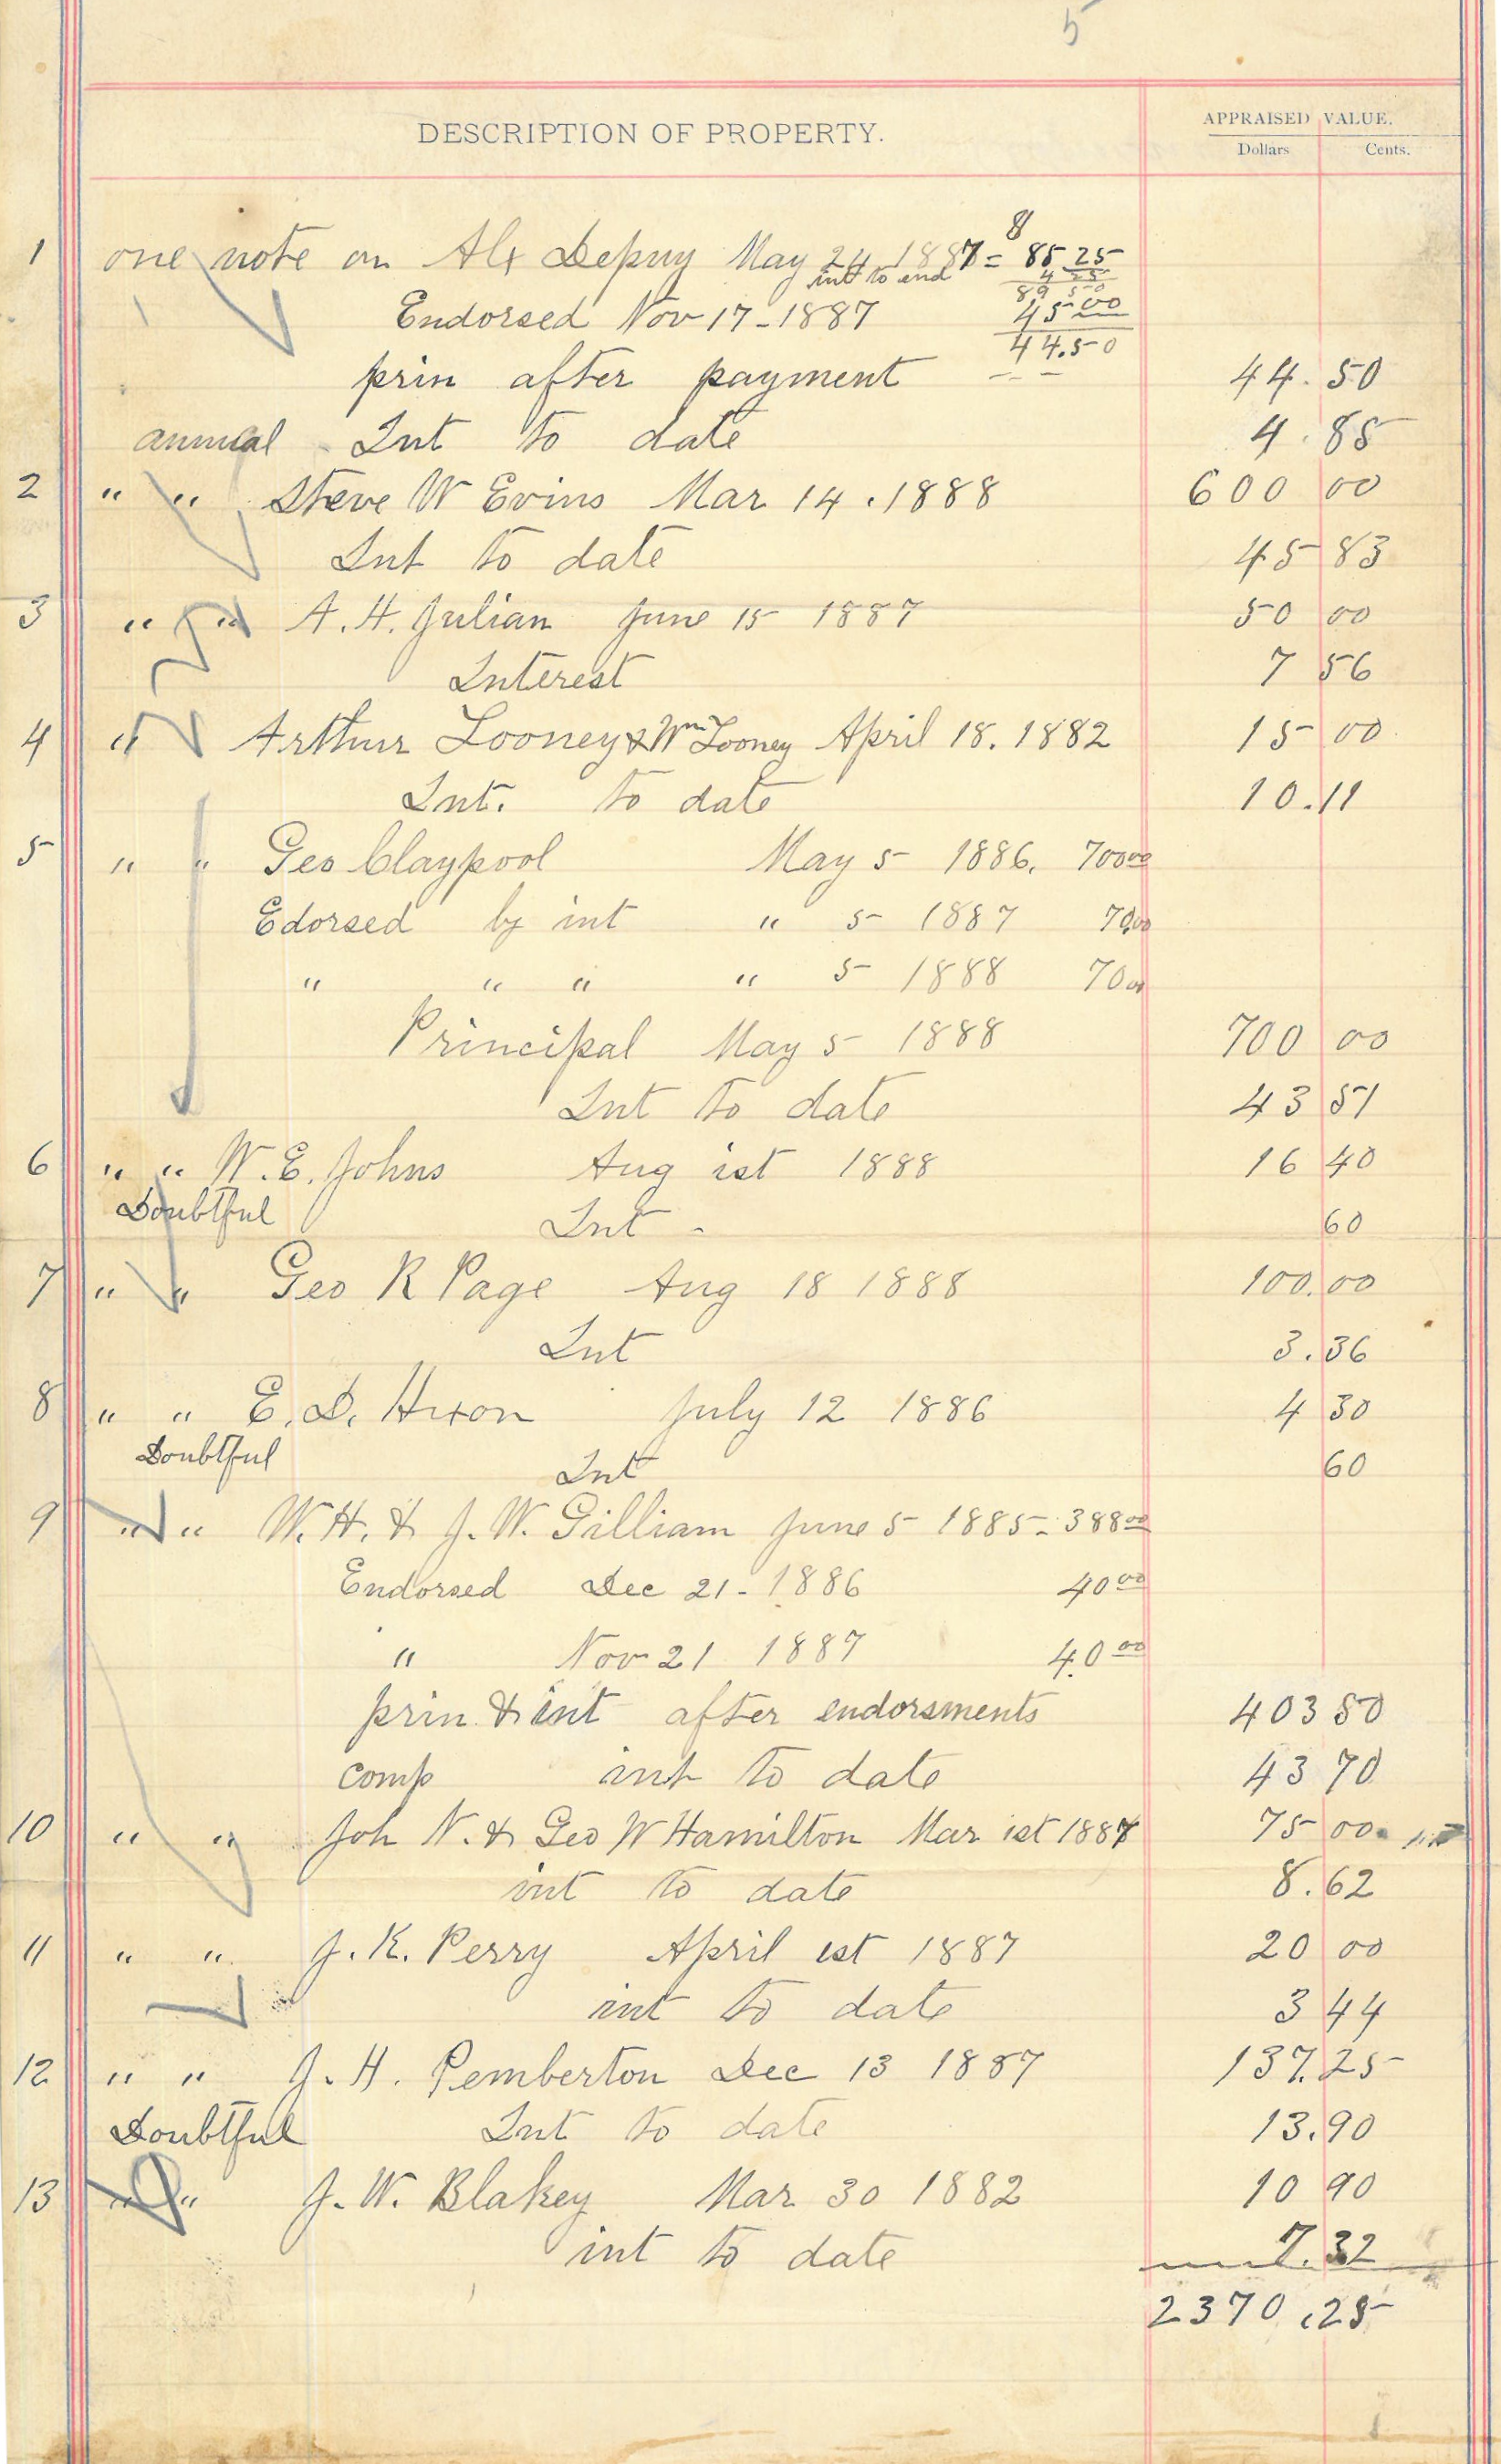 5
DESCRIPTION OF PROPERTY.
APPRAISED VALUE.
Dollars Cents.
8
1 one note on Alx Depuy May 24 1887 = 85 25
int to end 4 25
89 50
Endorsed Nov 17 - 1887 45 00
44.50
prin after payment 44. 50
annual Int to date 4. 85
2 " " Steve W Evins Mar 14. 1888 600 00
Int to date 45 83
3 " " A. H. Julian June 15 1887 50 00
Interest 7 56
4 " Arthur Looney & Wm Looney April 18. 1882 15 00
Int. to date 10.11
5 " " Geo Claypool May 5 1886. 700 00
Edorsed by int " 5 1887 70.00
" " " " 5 1888 70 00
Principal May 5 1888 700 00
Int to date 43 51
6 " " W. E. Johns Aug ist 1888 16 40
Doubtful Int - 60
7 " " Geo R Page Aug 18 1888 100.00
Int 3.36
8 " " E. D. Hixon July 12 1886 4 30
Doubtful Int 60
9 " " W. H. & J. W. Gilliam June 5 1885 - 388 00
Endorsed Dec 21 - 1886 40 00
" Nov 21 1887 40 00
prin & int after endorsments 403 50
comp int to date 43 70
10 " " Joh N. & Geo W Hamilton Mar ist 1887 75 00
int to date 8.62
11 " " J. K. Perry April ist 1887 20 00
int to date 3 44
12 " " J. H. Pemberton Dec 13 1887 137.25
Doubtful Int to date 13.90
13 " " J. W. Blakey Mar 30 1882 10 90
int to date 7.32
2370.25